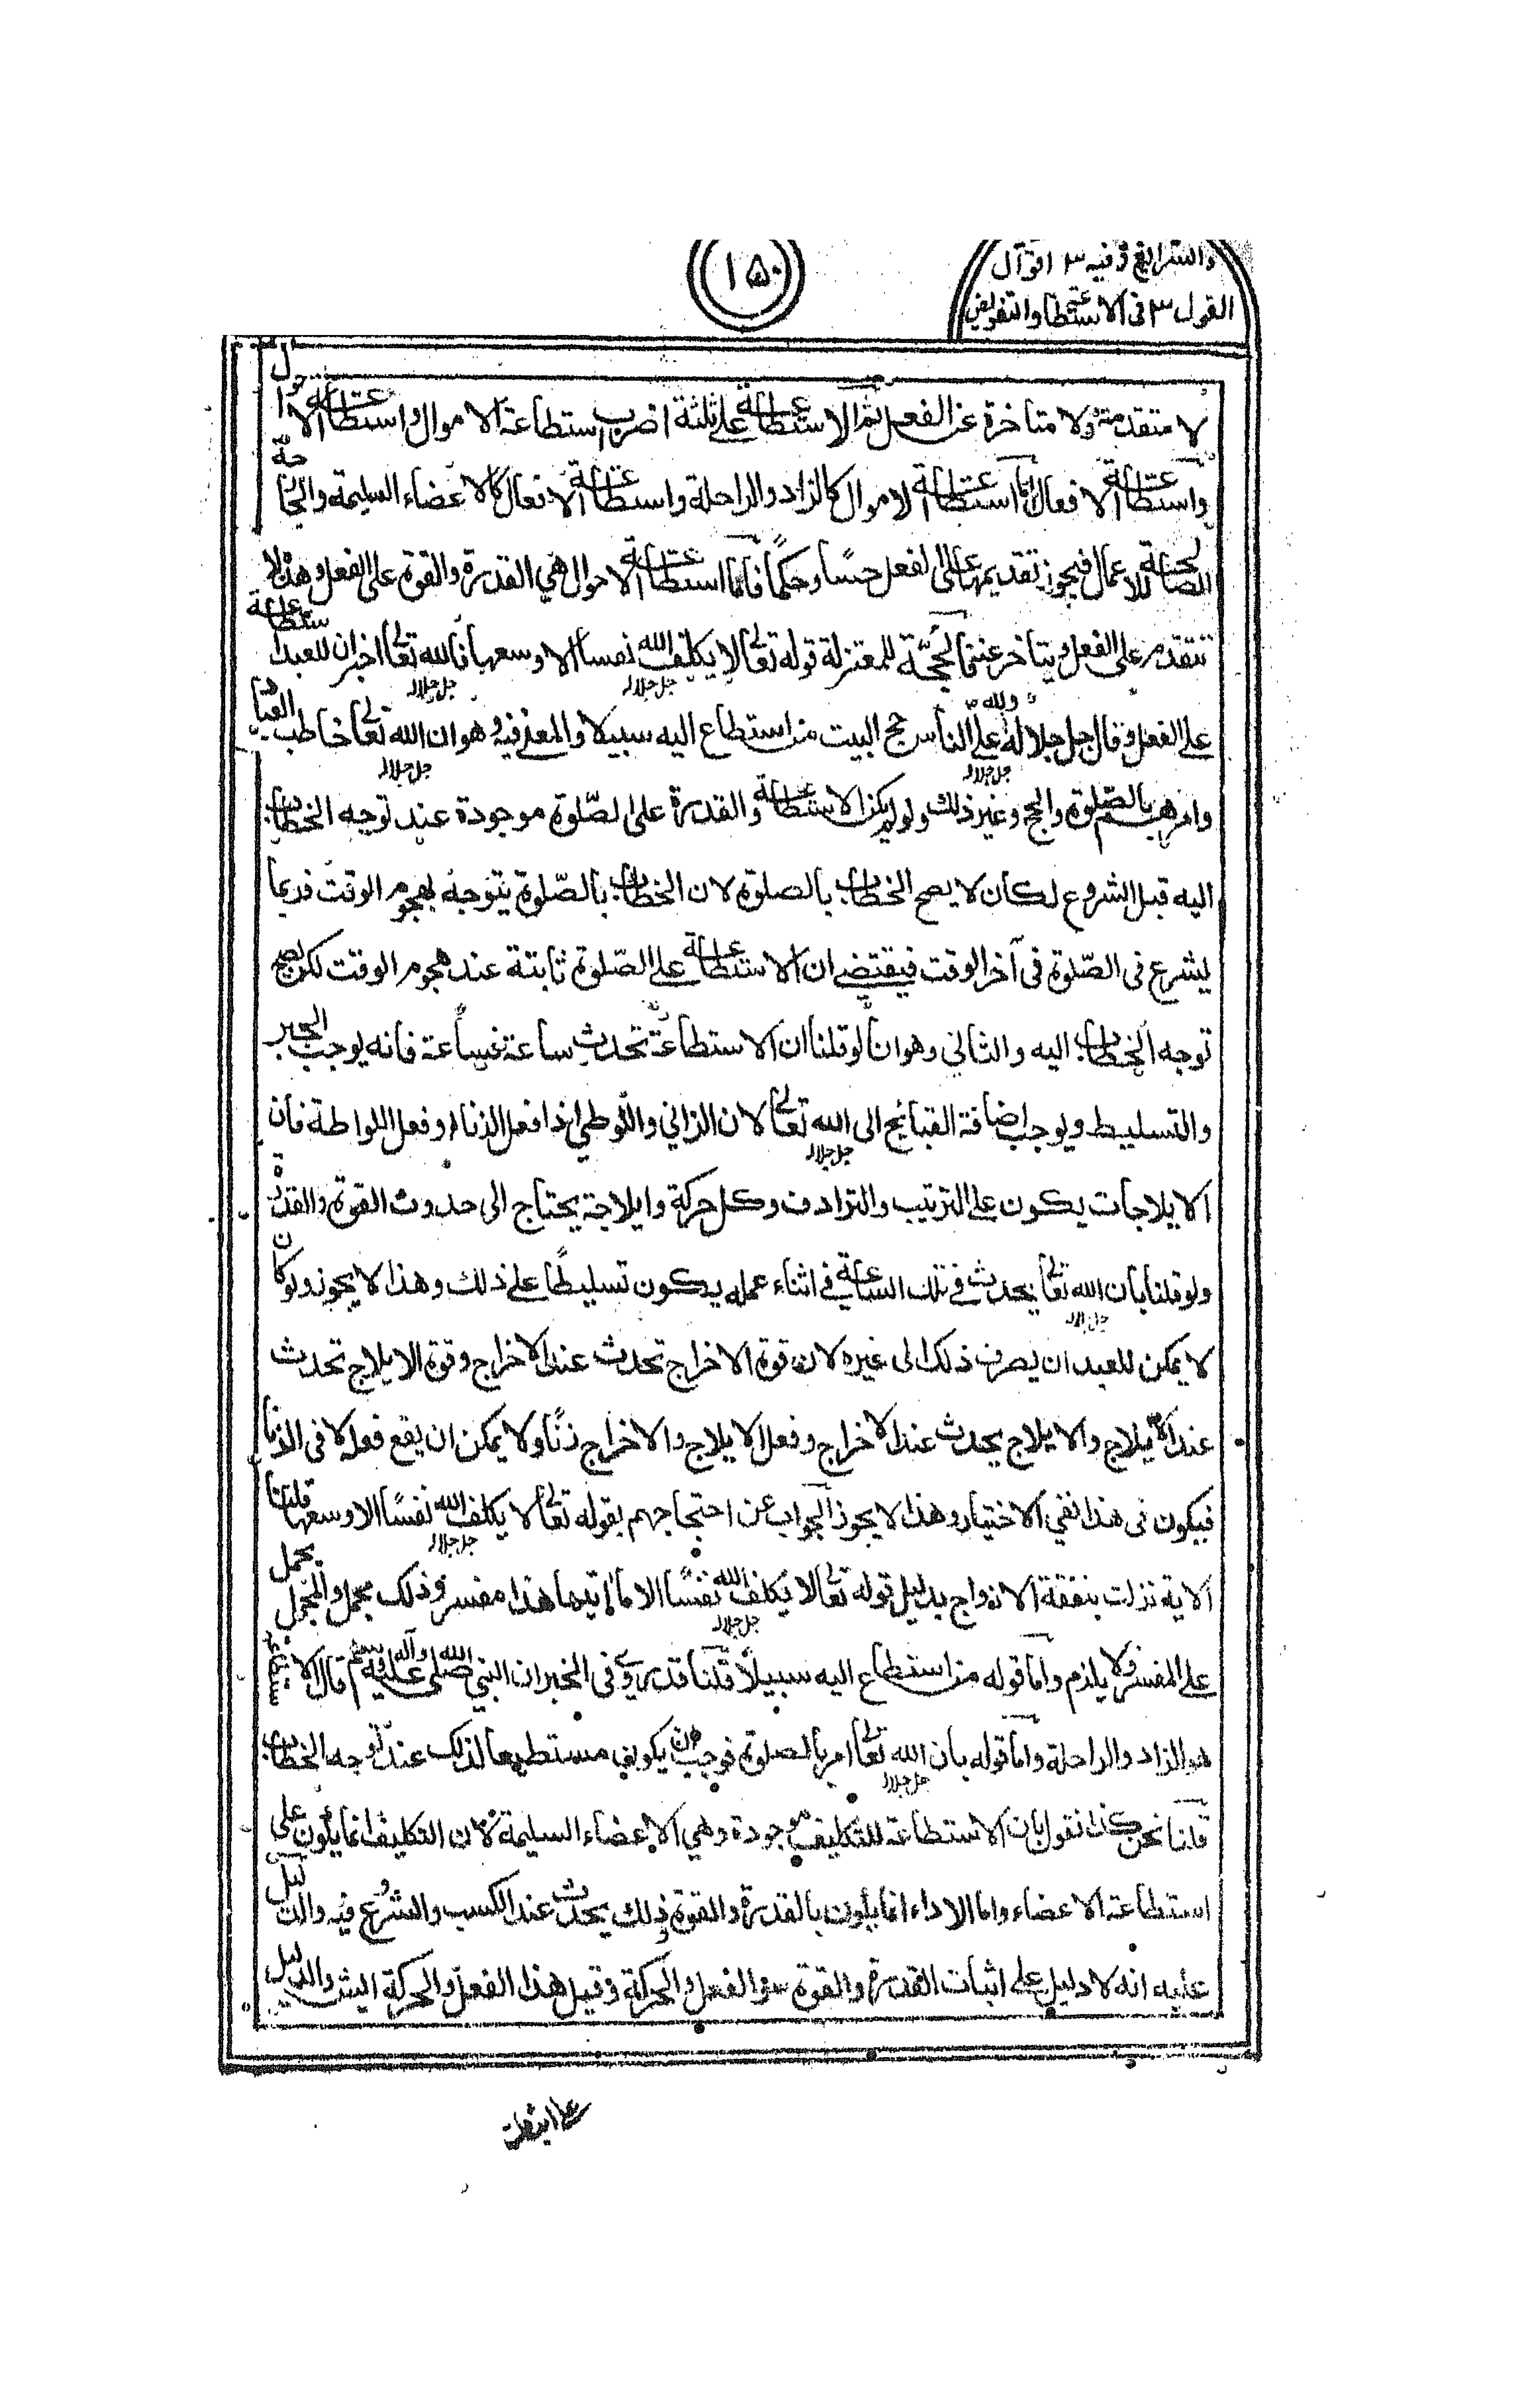 والشرايع وفيه ٣ اقوال
القول ٣ فى الاستطاعة والتفويض
١٥٠
لا متقدمة ولا متاخرة عن الفعل ثم الاستطاعة على ثلثة اضرب استطاعة الاموال واستطاعة الاحوال
واستطاعة الافعال اما استطاعة الاموال كالزاد والراحلة واستطاعة الافعال كالاعضاء السليمة والجارحة
الصالحة للاعمال فيجوز تقديمها على الفعل حسًا وحكمًا فاما استطاعة الاحوال هي القدرة والقوة على الفعل وهذا لا
تتقدم على الفعل ويتاخر عنه والحجّة للمعتزلة قوله تعالى لا يكلف الله نفسا الا وسعها فالله تعالى اخبر ان للعبد استطاعة
جل جلاله جل جلاله
على الفعل وقال جل جلاله ولله على النّاس حج البيت من استطاع اليه سبيلا والمعنى فيه وهو ان الله تعالى خاطب العباد
جل جلاله جل جلاله
وامرهم بالصّلوة والحج وغير ذلك ولو لم يكن الاستطاعة والقدرة على الصّلوة موجودة عند توجه الخطاب
اليه قبل الشروع لكان لا يصح الخطاب بالصلوة لان الخطاب بالصّلوة يتوجه بهجوم الوقت فربما
يشرع فى الصّلوة فى آخر الوقت فيقتضى ان الاستطاعة على الصّلوة ثابتة عند هجوم الوقت لكن يصح
توجه الخطاب اليه والثانى وهو انا لو قلنا ان الاستطاعة تحدث ساعة فساعة فانه يوجب الجبر
والتسليط ويوجب اضافة القبائح الى الله تعالى لان الزانى واللوطى اذا فعل الزنا او فعل اللواطة فان
جل جلاله
الايلاجات يكون على الترتيب والترادف وكل حركة وايلاجة يحتاج الى حدوث القوة والقدرة
ولو قلنا بان الله تعالى يحدث فى تلك الساعة فى اثناء عمله يكون تسليطًا على ذلك وهذا لا يجوز ولو كان
جل جلاله
لا يمكن للعبد ان يصرف ذلك الى غيره لان قوة الاخراج تحدث عند الاخراج وقوة الايلاج تحدث
عند الايلاج والايلاج يحدث عند الاخراج وفعل الايلاج والاخراج زنًا ولا يمكن ان يقع فعله لا فى الزنا
فيكون فى هذا نفى الاختيار وهذا لا يجوز الجواب عن احتجاجهم بقوله تعالى لا يكلف الله نفسًا الا وسعها قلنا
جل جلاله
الاية نزلت بنفقة الازواج بدليل قوله تعالى لا يكلف الله نفسًا الا ما اتيها هذا مفسر وذلك مجمل والمجمل يحمل
جل جلاله
على المفسر ولا يلزم واما قوله من استطاع اليه سبيلًا قلنا قد روى فى الخبر ان النبي صلى الله عليه وآله وسلم قال الاستطاعة
هو الزاد والراحلة واما قوله بان الله تعالى امر بالصلوة فوجب ان يكون مستطيعا لذلك عند توجه الخطاب
جل جلاله
قلنا نحن كذا نقول بان الاستطاعة للتكليف موجودة وهي الاعضاء السليمة لان التكليف انما يكون على
استطاعة الاعضاء واما الاداء انما يكون بالقدرة والقوة وذلك يحدث عند الكسب والشروع فيه والدليل
عليه انه لا دليل على اثبات القدرة والقوة سوى الفعل والحركة وقيل هذا الفعل والحركة ليس والدليل